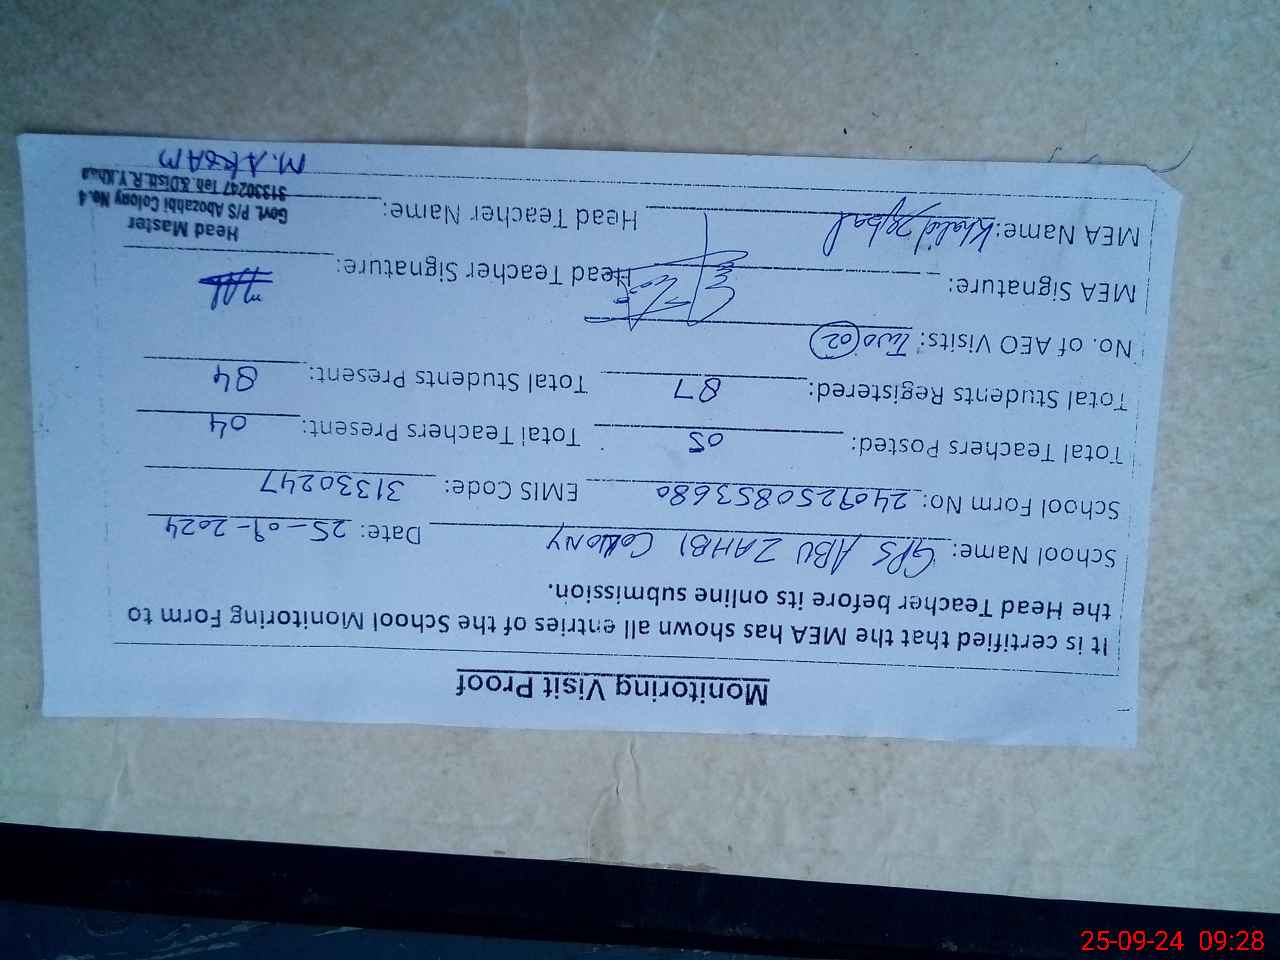 Monitoring Visit Proof
It is certified that the MEA has shown all entries of the School Monitoring Form to
the Head Teacher before its online submission.
School Name: GPS ABU ZAHBI COLLONY Date: 25-09-2024
School Form No: 240925085368० EMIS Code: 31330247
Total Teachers Posted: 05 Total Teachers Present: 04
Total Students Registered: 87 Total Students Present: 84
No. of AEO Visits: Two 02
MEA Signature: Head Teacher Signature:
MEA Name: Khalid Iqbal Head Teacher Name:
Head Master
Govt. P/S Abozahbi Colony No.4
31330247 Teh. & Distt. R.Y.Khan
M. AKRAM
25-09-24 09:28